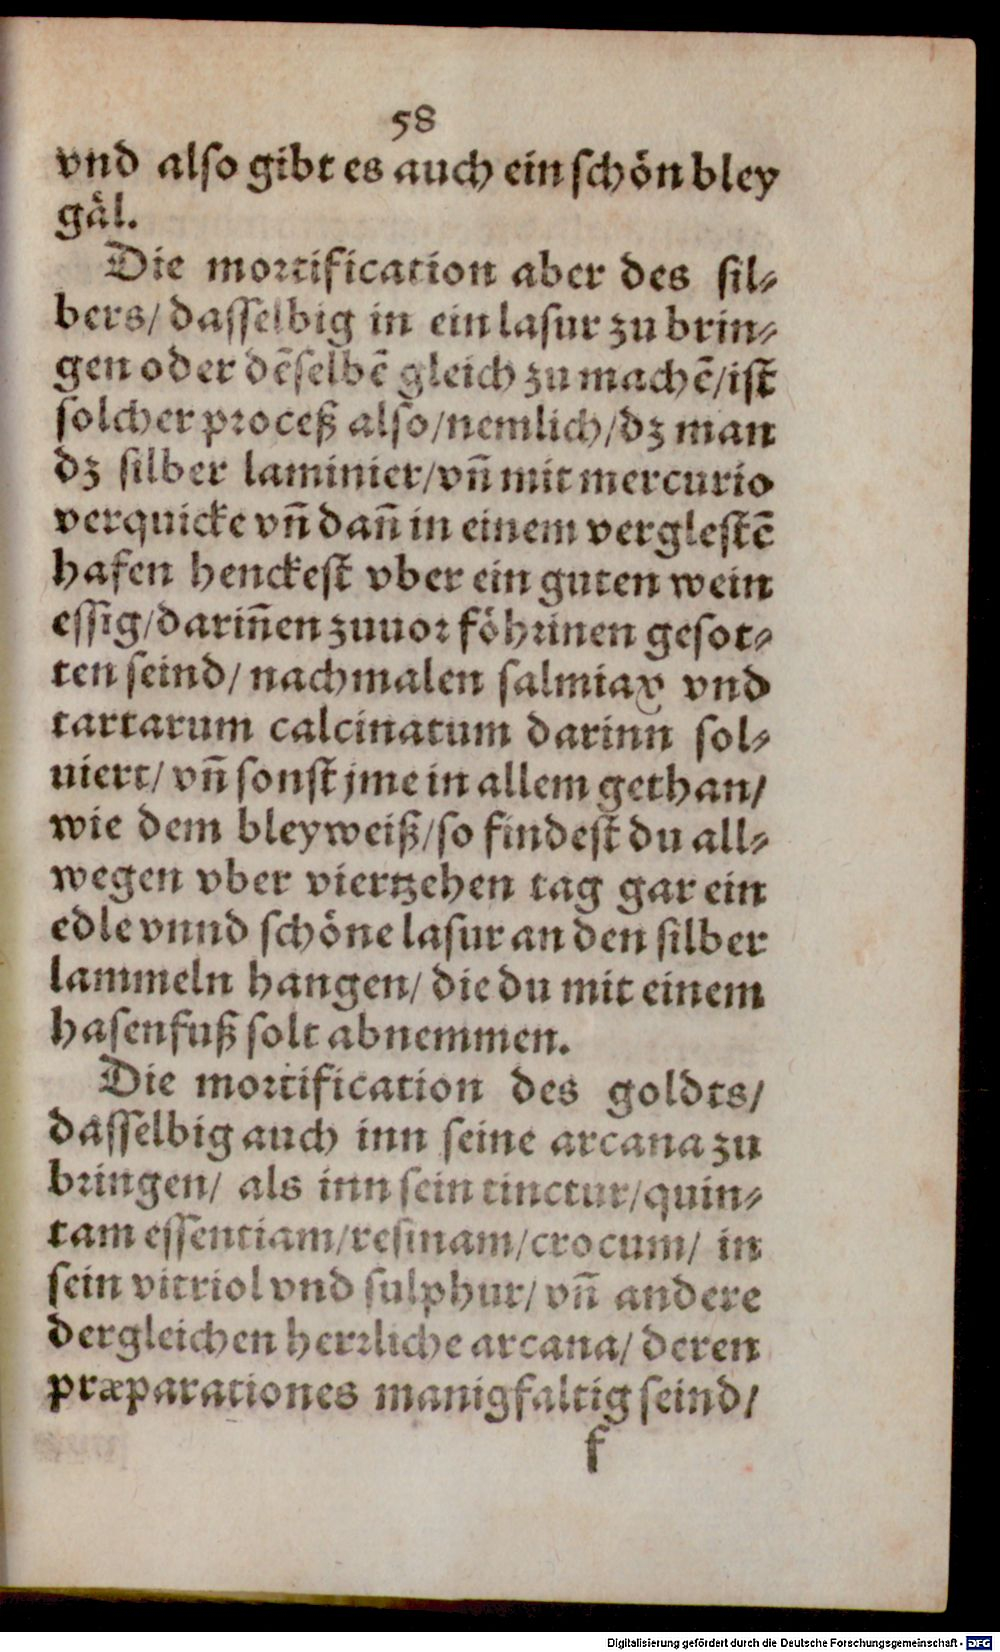 58
vnd also gibt es auch ein schön bley
gäl.
Die mortification aber des sil⸗
bers/ dasselbig in ein lasur zu brin⸗
gen oder dẽselbẽ gleich zu machẽ/ ist
solcher proceß also/ nemlich/ dz man
dz silber laminier/ vñ mit mercurio
verquicke vñ dañ in einem verglestẽ
hafen henckest vber ein guten wein
essig/ dariñen zuuor föhrinen gesot⸗
ten seind/ nachmalen salmiax vnd
tartarum calcinatum darinn sol⸗
uiert/ vñ sonst jme in allem gethan/
wie dem bleyweiß/ so findest du all⸗
wegen vber viertzehen tag gar ein
edle vnnd schöne lasur an den silber
lammeln hangen/ die du mit einem
hasenfuß solt abnemmen.
Die mortification des goldts/
dasselbig auch inn seine arcana zu
bringen/ als inn sein tinctur/ quin⸗
tam essentiam/ resinam/ crocum/ in
sein vitriol vnd sulphur/ vñ andere
dergleichen herrliche arcana/ deren
præparationes manigfaltig seind/
f
Digitalisierung gefördert durch die Deutsche Forschungsgemeinschaft - DFG